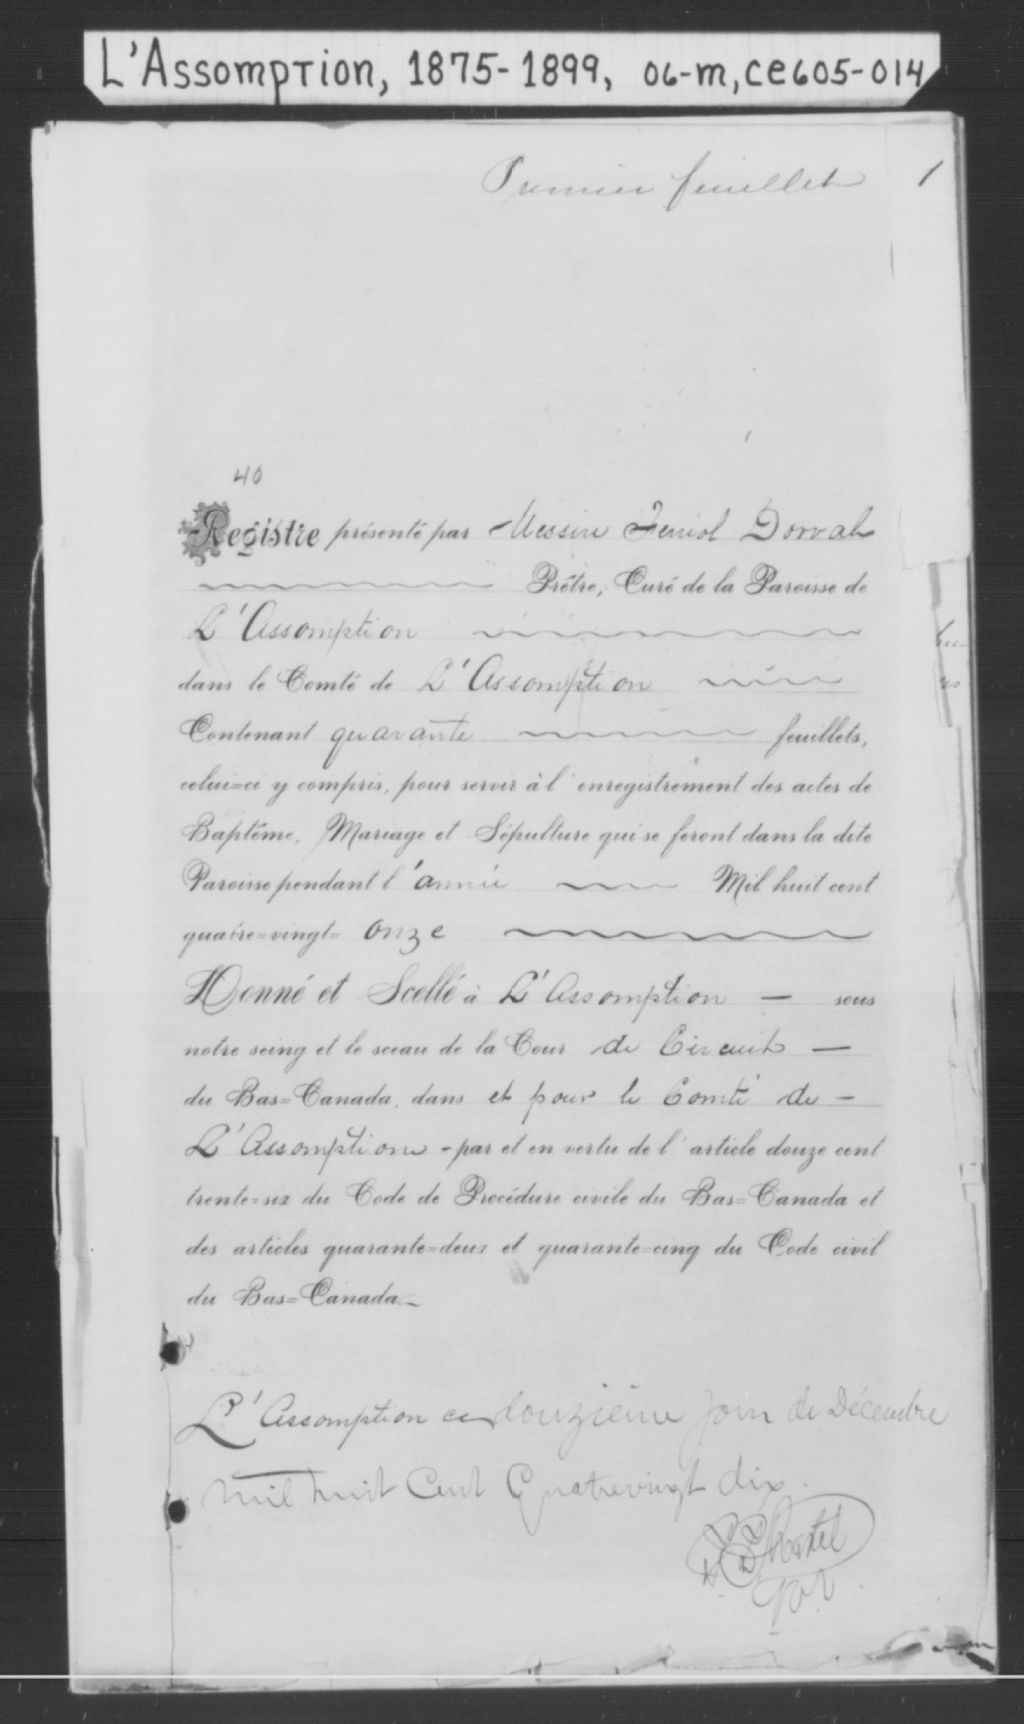 L'Assomption, 1875-1899, 06-m, ce605-014
Premier feuillet 1
40
Registre présenté par Messire Ferriol Dorval
Prêtre, Curé de la Paroisse de
L'Assomption
dans le Comté de L'Assomption
Contenant quarante feuillets,
celui=ci y compris, pour servir à l'enregistrement des actes de
Baptême, Mariage et Sépulture qui se feront dans la dite
Paroisse pendant l'année Mil huit cent
quatre=vingt= onze
Donné et Scellé à L'Assomption — sous
notre seing et le sceau de la Cour de Circuit —
du Bas=Canada, dans et pour le Comté de -
L'Assomption - par et en vertu de l'article douze cent
trente=six du Code de Procédure civile du Bas=Canada et
des articles quarante=deux et quarante=cinq du Code civil
du Bas=Canada.-
L'Assomption ce douzième jour de Décembre
mil huit Cent Quatrevingt dix.
Martel